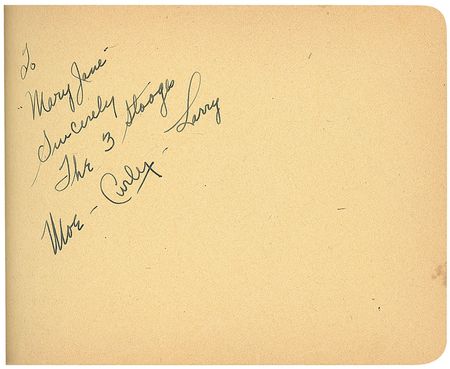 To
"Mary Jane"
Sincerely
The 3 Stooges
Moe - Curly - Larry